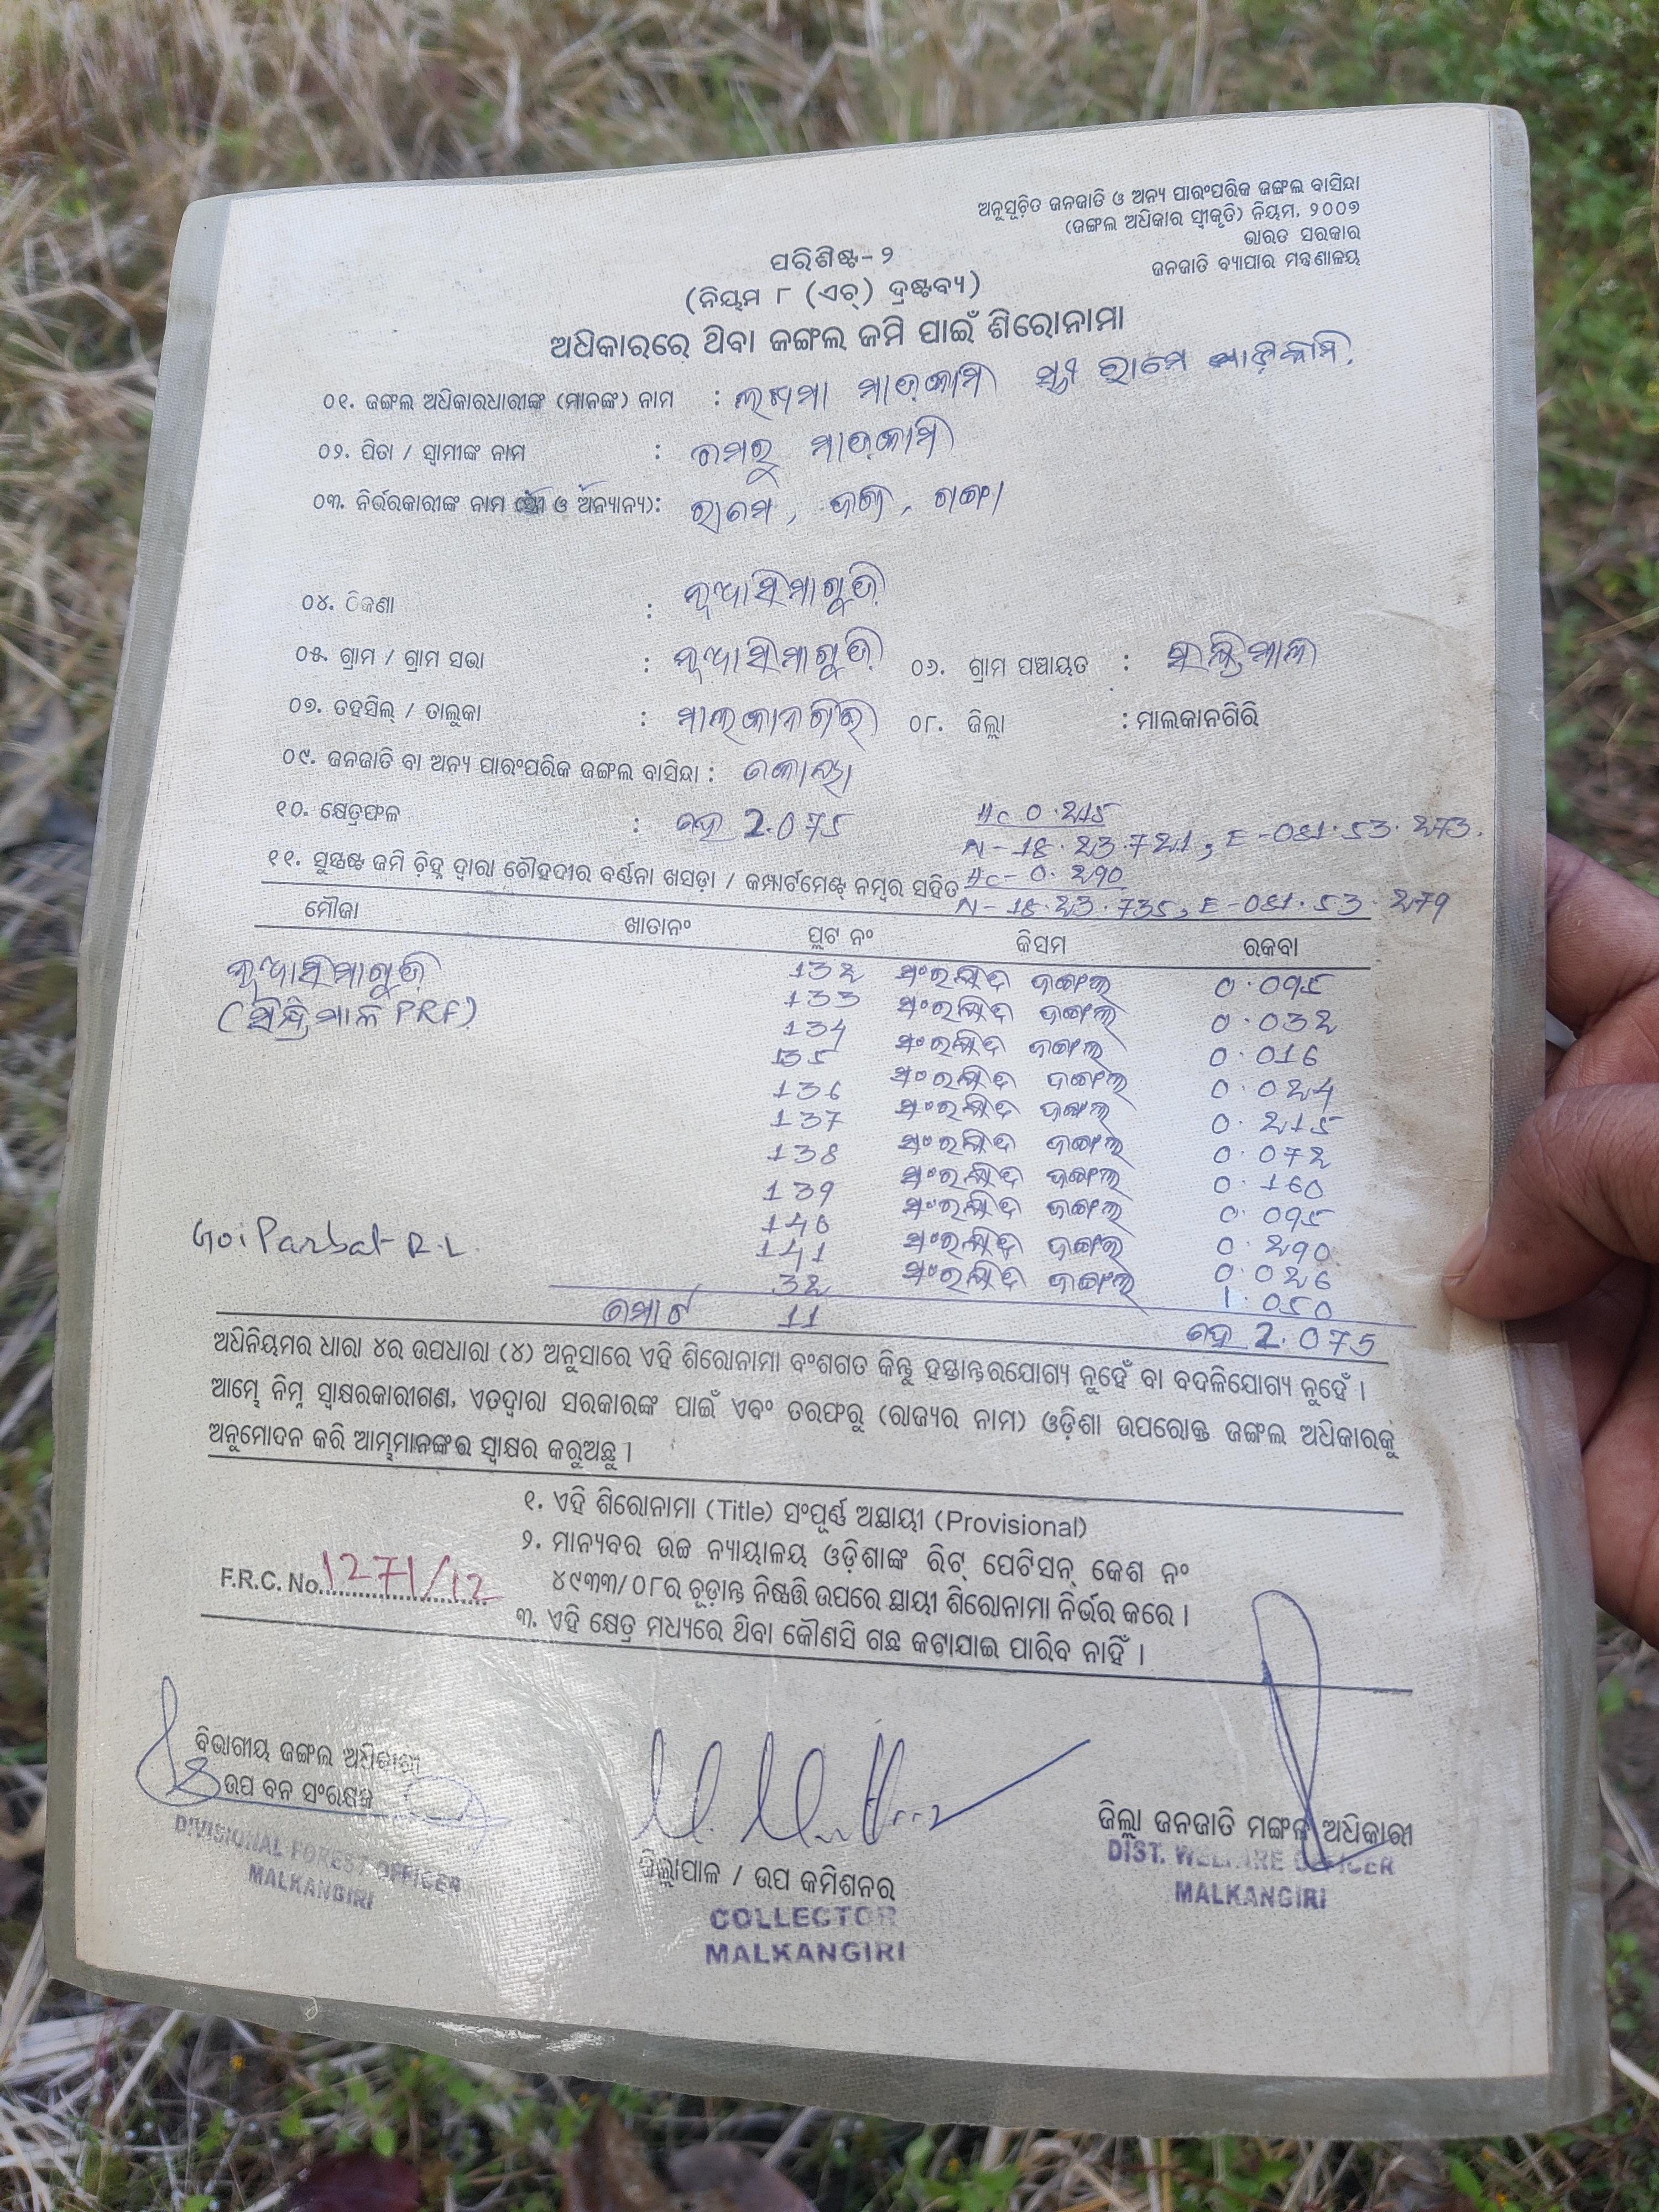 ଅନୁସୂଚିତ ଜନଜାତି ଓ ଅନ୍ୟ ପାରଂପରିକ ଜଙ୍ଗଲ ବାସିନ୍ଦା
(ଜଙ୍ଗଲ ଅଧିକାର ସ୍ୱୀକୃତି) ନିୟମ, ୨୦୦୭
ଭାରତ ସରକାର
ଜନଜାତି ବ୍ୟାପାର ମନ୍ତ୍ରଣାଳୟ
ପରିଶିଷ୍ଟ-୨
(ନିୟମ ୮ (ଏଚ୍) ଦ୍ରଷ୍ଟବ୍ୟ)
ଅଧିକାରରେ ଥିବା ଜଙ୍ଗଲ ଜମି ପାଇଁ ଶିରୋନାମା
୦୧. ଜଙ୍ଗଲ ଅଧିକାରଧାରୀଙ୍କ (ମାନଙ୍କ) ନାମ : ଲଖମା ମାଡ଼କାମି ସ୍ତ୍ରୀ ରାମେ ମାଡ଼କାମି.
୦୨. ପିତା / ସ୍ୱାମୀଙ୍କ ନାମ : ମାଡ଼କାମି
୦୩. ନିର୍ଭରକାରୀଙ୍କ ନାମ (ସ୍ତ୍ରୀ ଓ ଅନ୍ୟାନ୍ୟ):
୦୪. ଠିକଣା : ନୂଆସିମାଗୁଡ଼ି
୦୫. ଗ୍ରାମ / ଗ୍ରାମ ସଭା : ନୂଆସିମାଗୁଡ଼ି ୦୬. ଗ୍ରାମ ପଞ୍ଚାୟତ :
୦୭. ତହସିଲ୍ / ତାଲୁକା : ମାଲକାନଗିରି ୦୮. ଜିଲ୍ଲା : ମାଲକାନଗିରି
୦୯. ଜନଜାତି ବା ଅନ୍ୟ ପାରଂପରିକ ଜଙ୍ଗଲ ବାସିନ୍ଦା : କୋୟା
୧୦. କ୍ଷେତ୍ରଫଳ : ହେ 2.075
Hc 0.215
N-18.23.721, E-081.53.273.
୧୧. ସୁସ୍ପଷ୍ଟ ଜମି ଚିହ୍ନ ଦ୍ୱାରା ଚୌହଦୀର ବର୍ଣ୍ଣନା ଖସଡ଼ା / କମ୍ପାର୍ଟମେଣ୍ଟ ନମ୍ବର ସହିତ Hc-0.290
N-18.23.735, E-081.53.279
ମୌଜା ଖାତାନଂ ପ୍ଲଟ ନଂ କିସମ ରକବା
ନୂଆସିମାଗୁଡ଼ି 132 ସଂରକ୍ଷିତ ଜଙ୍ଗଲ 0.095
(ସିନ୍ଦ୍ରିମାଳ PRF) 133 ସଂରକ୍ଷିତ ଜଙ୍ଗଲ 0.032
134 ସଂରକ୍ଷିତ ଜଙ୍ଗଲ 0.016
135 ସଂରକ୍ଷିତ ଜଙ୍ଗଲ 0.024
136 ସଂରକ୍ଷିତ ଜଙ୍ଗଲ 0.215
137 ସଂରକ୍ଷିତ ଜଙ୍ଗଲ 0.072
138 ସଂରକ୍ଷିତ ଜଙ୍ଗଲ 0.160
139 ସଂରକ୍ଷିତ ଜଙ୍ଗଲ 0.095
140 ସଂରକ୍ଷିତ ଜଙ୍ଗଲ 0.290
141 ସଂରକ୍ଷିତ ଜଙ୍ଗଲ 0.026
Goi Parbat R.L. 32 1.050
ମୋଟ 11 ହେ 2.075
ଅଧିନିୟମର ଧାରା ୪ର ଉପଧାରା (୪) ଅନୁସାରେ ଏହି ଶିରୋନାମା ବଂଶଗତ କିନ୍ତୁ ହସ୍ତାନ୍ତରଯୋଗ୍ୟ ନୁହେଁ ବା ବଦଳିଯୋଗ୍ୟ ନୁହେଁ ।
ଆମ୍ଭେ ନିମ୍ନ ସ୍ୱାକ୍ଷରକାରୀଗଣ, ଏତଦ୍ୱାରା ସରକାରଙ୍କ ପାଇଁ ଏବଂ ତରଫରୁ (ରାଜ୍ୟର ନାମ) ଓଡ଼ିଶା ଉପରୋକ୍ତ ଜଙ୍ଗଲ ଅଧିକାରକୁ
ଅନୁମୋଦନ କରି ଆମ୍ଭମାନଙ୍କର ସ୍ୱାକ୍ଷର କରୁଅଛୁ ।
୧. ଏହି ଶିରୋନାମା (Title) ସଂପୂର୍ଣ୍ଣ ଅସ୍ଥାୟୀ (Provisional)
୨. ମାନ୍ୟବର ଉଚ୍ଚ ନ୍ୟାୟାଳୟ ଓଡ଼ିଶାଙ୍କ ରିଟ୍ ପେଟିସନ୍ କେଶ ନଂ
୪୯୩୩/୦୮ର ଚୂଡ଼ାନ୍ତ ନିଷ୍ପତ୍ତି ଉପରେ ସ୍ଥାୟୀ ଶିରୋନାମା ନିର୍ଭର କରେ ।
F.R.C. No. 1271/12
୩. ଏହି କ୍ଷେତ୍ର ମଧ୍ୟରେ ଥିବା କୌଣସି ଗଛ କଟାଯାଇ ପାରିବ ନାହିଁ ।
ବିଭାଗୀୟ ଜଙ୍ଗଲ ଅଧିକାରୀ
ଉପ ବନ ସଂରକ୍ଷକ
DIVISIONAL FOREST OFFICER
MALKANGIRI
ଜିଲ୍ଲାପାଳ / ଉପ କମିଶନର
COLLECTOR
MALKANGIRI
ଜିଲ୍ଲା ଜନଜାତି ମଙ୍ଗଳ ଅଧିକାରୀ
DIST. WELFARE OFFICER
MALKANGIRI